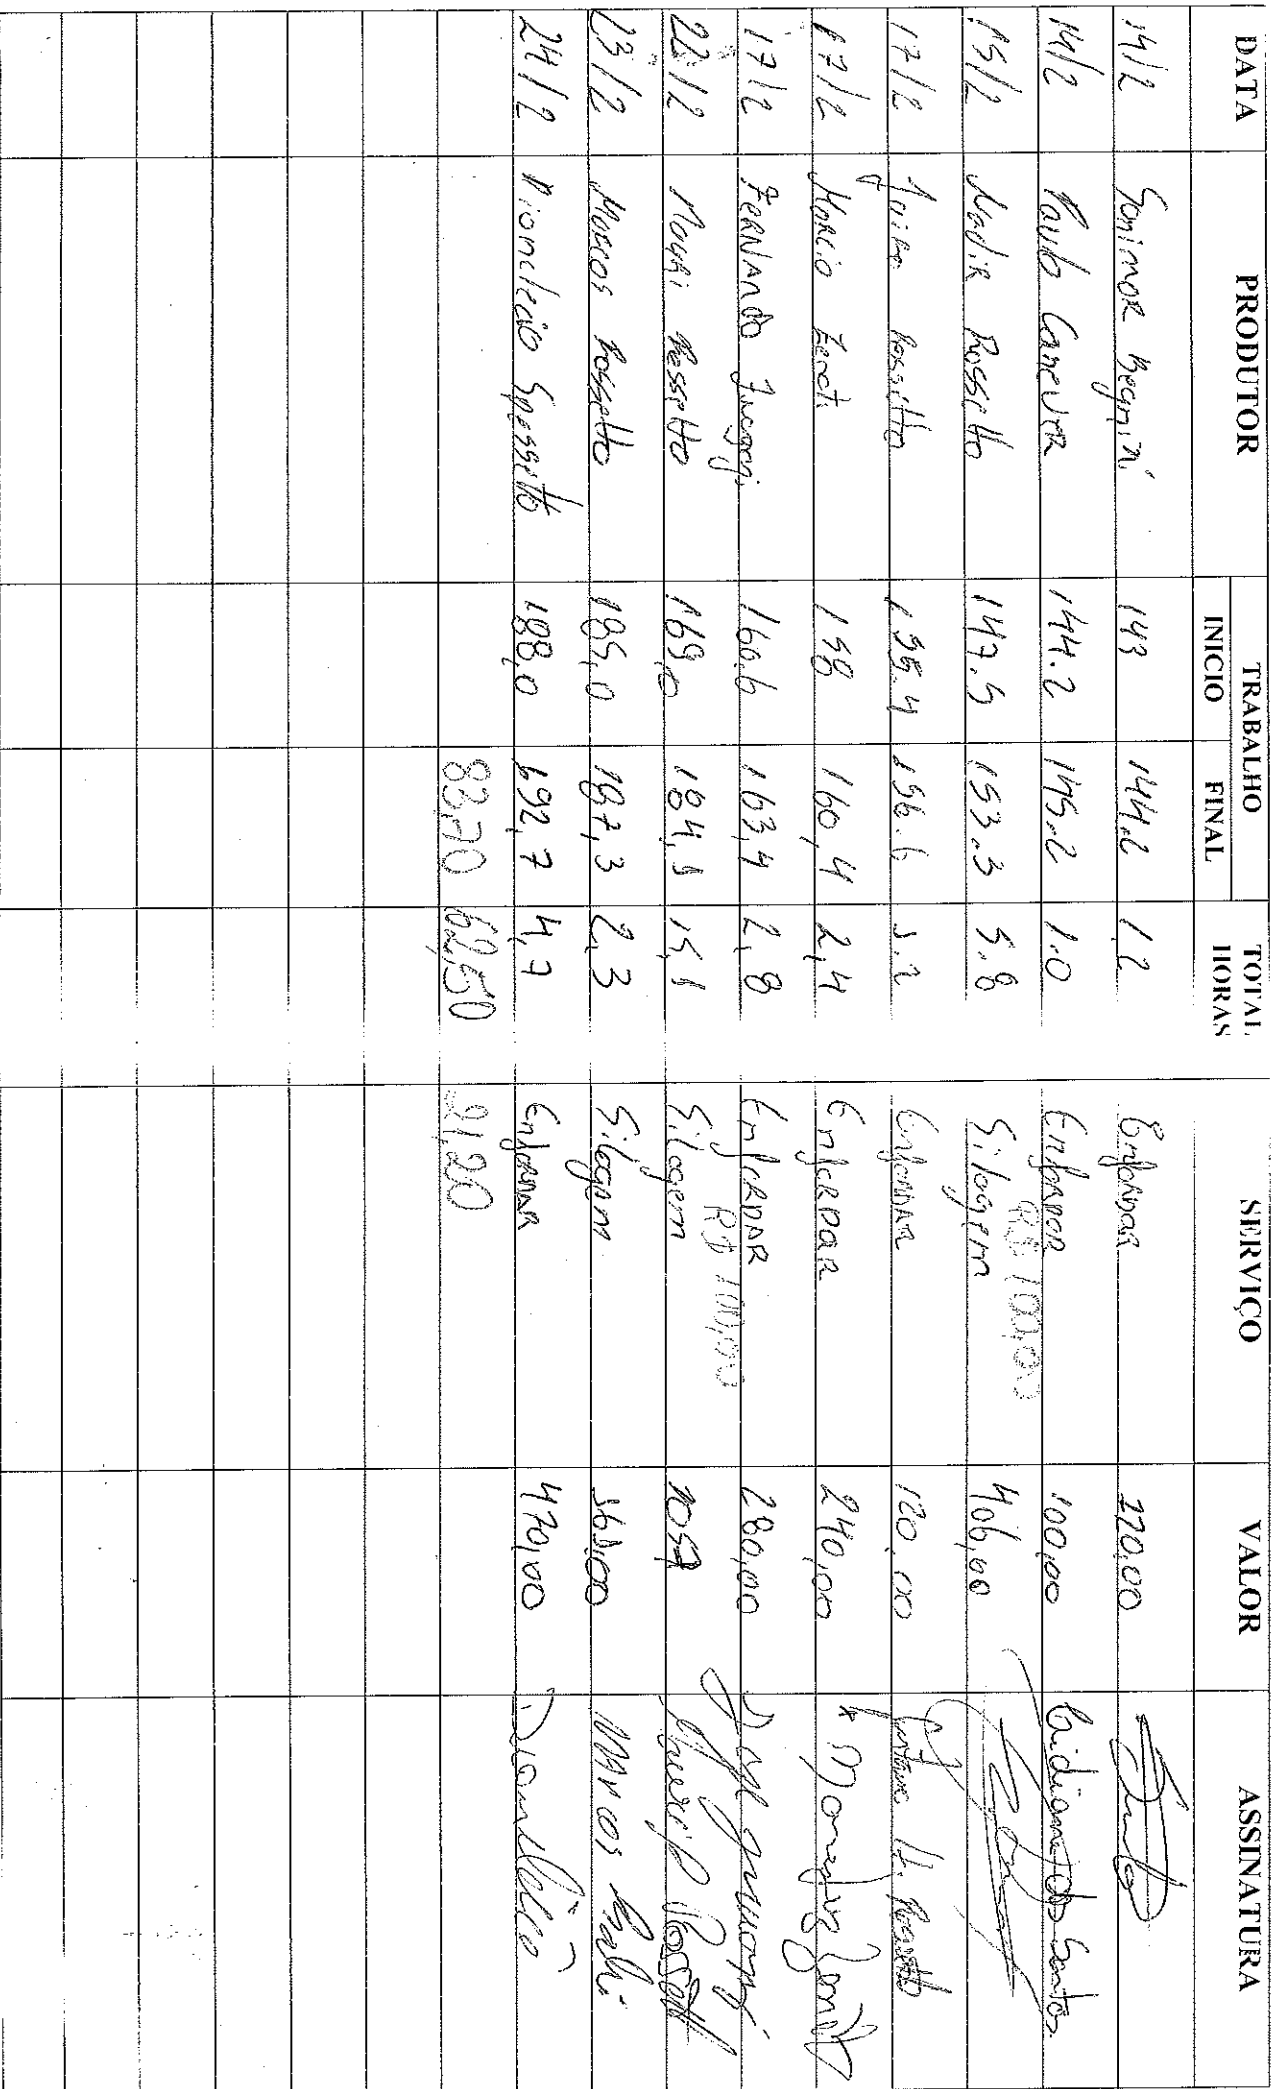 DATA PRODUTOR TRABALHO INICIO FINAL TOTAL HORAS SERVIÇO VALOR ASSINATURA
14/2 143 144.2 1.2 Enfardar 120,00
14/2 Paulo Canever 144.2 145.2 1.0 Enfardar 100,00 Lidiane dos Santos
R$ 100,00
15/2 Nadir Rossetto 147.5 153.3 5.8 Silagem 406,00
17/2 Jairo Rossetto 155.4 156.6 1.2 Enfardar 120,00
17/2 Marcio 158 160,4 2,4 Enfardar 240,00
17/2 Fernando 160.6 163,4 2,8 Enfardar 280,00
R$ 100,00
22/2 Mauri Rossetto 169,0 184,1 15,1 Silagem 1057
23/2 Marcos Rossetto 185,0 187,3 2,3 Silagem 161,00 Marcos
24/2 Dionclecio Spessatto 188,0 192,7 4,7 Enfardar 470,00
83,70 62,50 21,20